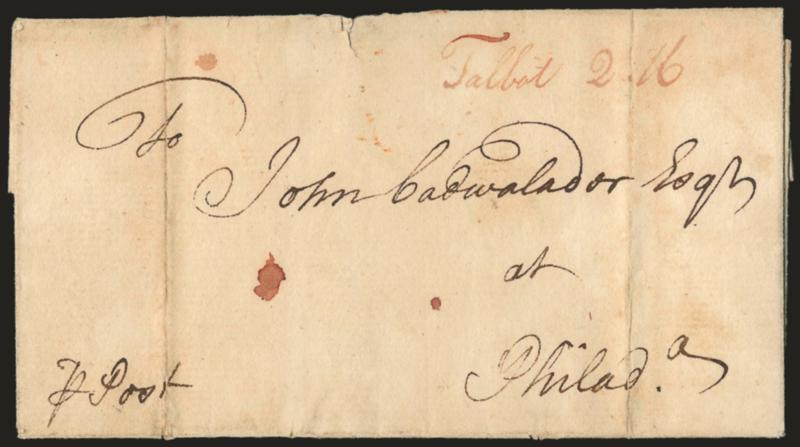 Talbot 2.16
To
John Cadwalador Esqr
at
Philad.a
⅌ Post